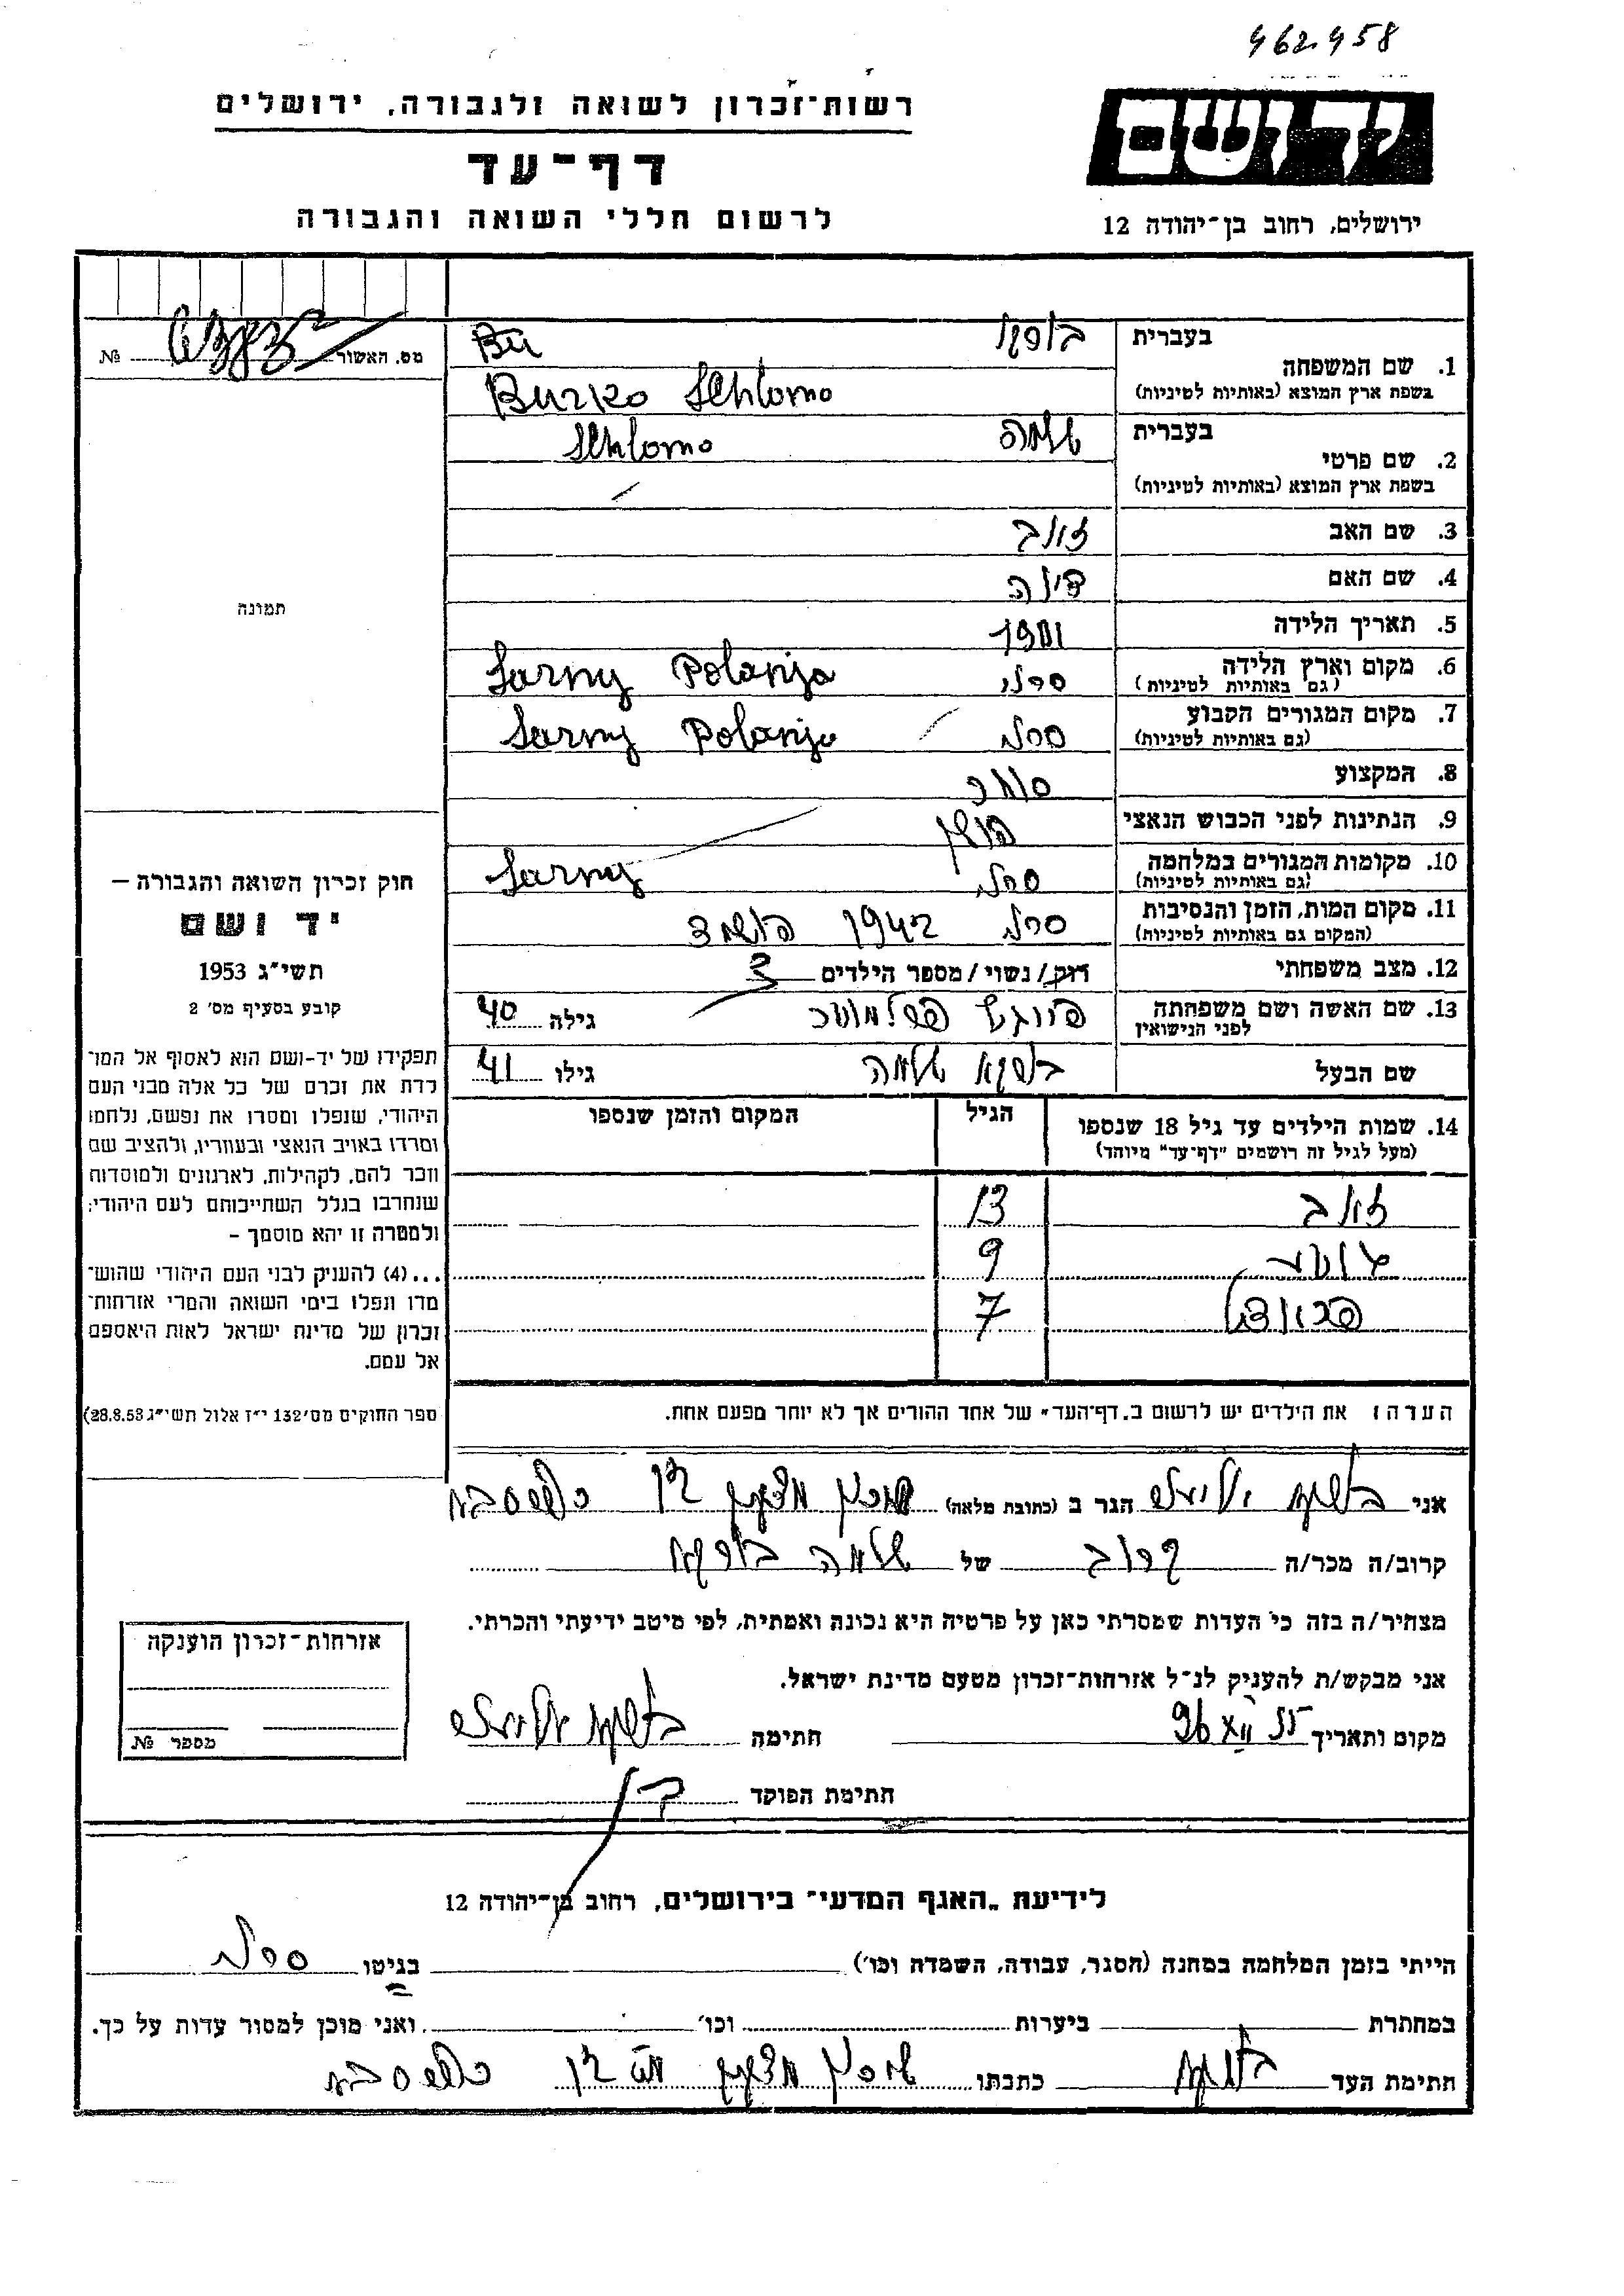 462458
רשות־זכרון לשואה ולגבורה, ירושלים
יד ושם
דף־עד
לרשום חללי השואה והגבורה
ירושלים, רחוב בן־יהודה 12
מס. האשור № 
בעברית Bu
1. שם המשפחה
בשפת ארץ המוצא (באותיות לטיניות) Burko Schlomo
בעברית שלמה Schlomo
2. שם פרטי
בשפת ארץ המוצא (באותיות לטיניות)
3. שם האב זאב
4. שם האם
5. תאריך הלידה 1901
6. מקום וארץ הלידה סרני Sarny Polanja
(גם באותיות לטיניות)
7. מקום המגורים הקבוע סרני Sarny Polanja
(גם באותיות לטיניות)
8. המקצוע סוחר
9. הנתינות לפני הכבוש הנאצי
10. מקומות המגורים במלחמה סרני Sarny
(גם באותיות לטיניות)
11. מקום המות, הזמן והנסיבות סרני 1942 הושמד
(המקום גם באותיות לטיניות)
12. מצב משפחתי רוק/נשוי/מספר הילדים 3
13. שם האשה ושם משפחתה גילה 40
לפני הנישואין
שם הבעל שלמה גילו 41
14. שמות הילדים עד גיל 18 שנספו הגיל המקום והזמן שנספו
(מעל לגיל זה רושמים "דף־עד" מיוחד)
זאב 13
9
7
הערה: את הילדים יש לרשום ב„דף־העד" של אחד ההורים אך לא יותר מפעם אחת.
תמונה
חוק זכרון השואה והגבורה –
יד ושם
תשי"ג 1953
קובע בסעיף מס' 2
תפקידו של יד-ושם הוא לאסוף אל המו־
לדת את זכרם של כל אלה מבני העם
היהודי, שנפלו ומסרו את נפשם, נלחמו
ומרדו באויב הנאצי ובעוזריו, ולהציב שם
וזכר להם, לקהילות, לארגונים ולמוסדות
שנחרבו בגלל השתייכותם לעם היהודי;
ולמטרה זו יהא מוסמך –
...(4) להעניק לבני העם היהודי שהוש־
מדו ונפלו בימי השואה והמרי אזרחות־
זכרון של מדינת ישראל לאות היאספם
אל עמם.
ספר החוקים מס' 132 י"ז אלול תשי"ג 28.8.53)
אני הגר ב (כתובת מלאה) כפר סבא
קרוב/ה מכר/ה קרוב של שלמה
מצהיר/ה בזה כי העדות שמסרתי כאן על פרטיה היא נכונה ואמתית, לפי מיטב ידיעתי והכרתי.
אני מבקש/ת להעניק לנ"ל אזרחות־זכרון מטעם מדינת ישראל.
מקום ותאריך חתימה
חתימת הפוקד
אזרחות־זכרון הוענקה
מספר №
לידיעת „האגף המדעי" בירושלים, רחוב בן־יהודה 12
הייתי בזמן המלחמה במחנה (הסגר, עבודה, השמדה וכו') בגיטו סרני
במחתרת ביערות וכו' ואני מוכן למסור עדות על כך.
חתימת העד כתבתו כפר סבא